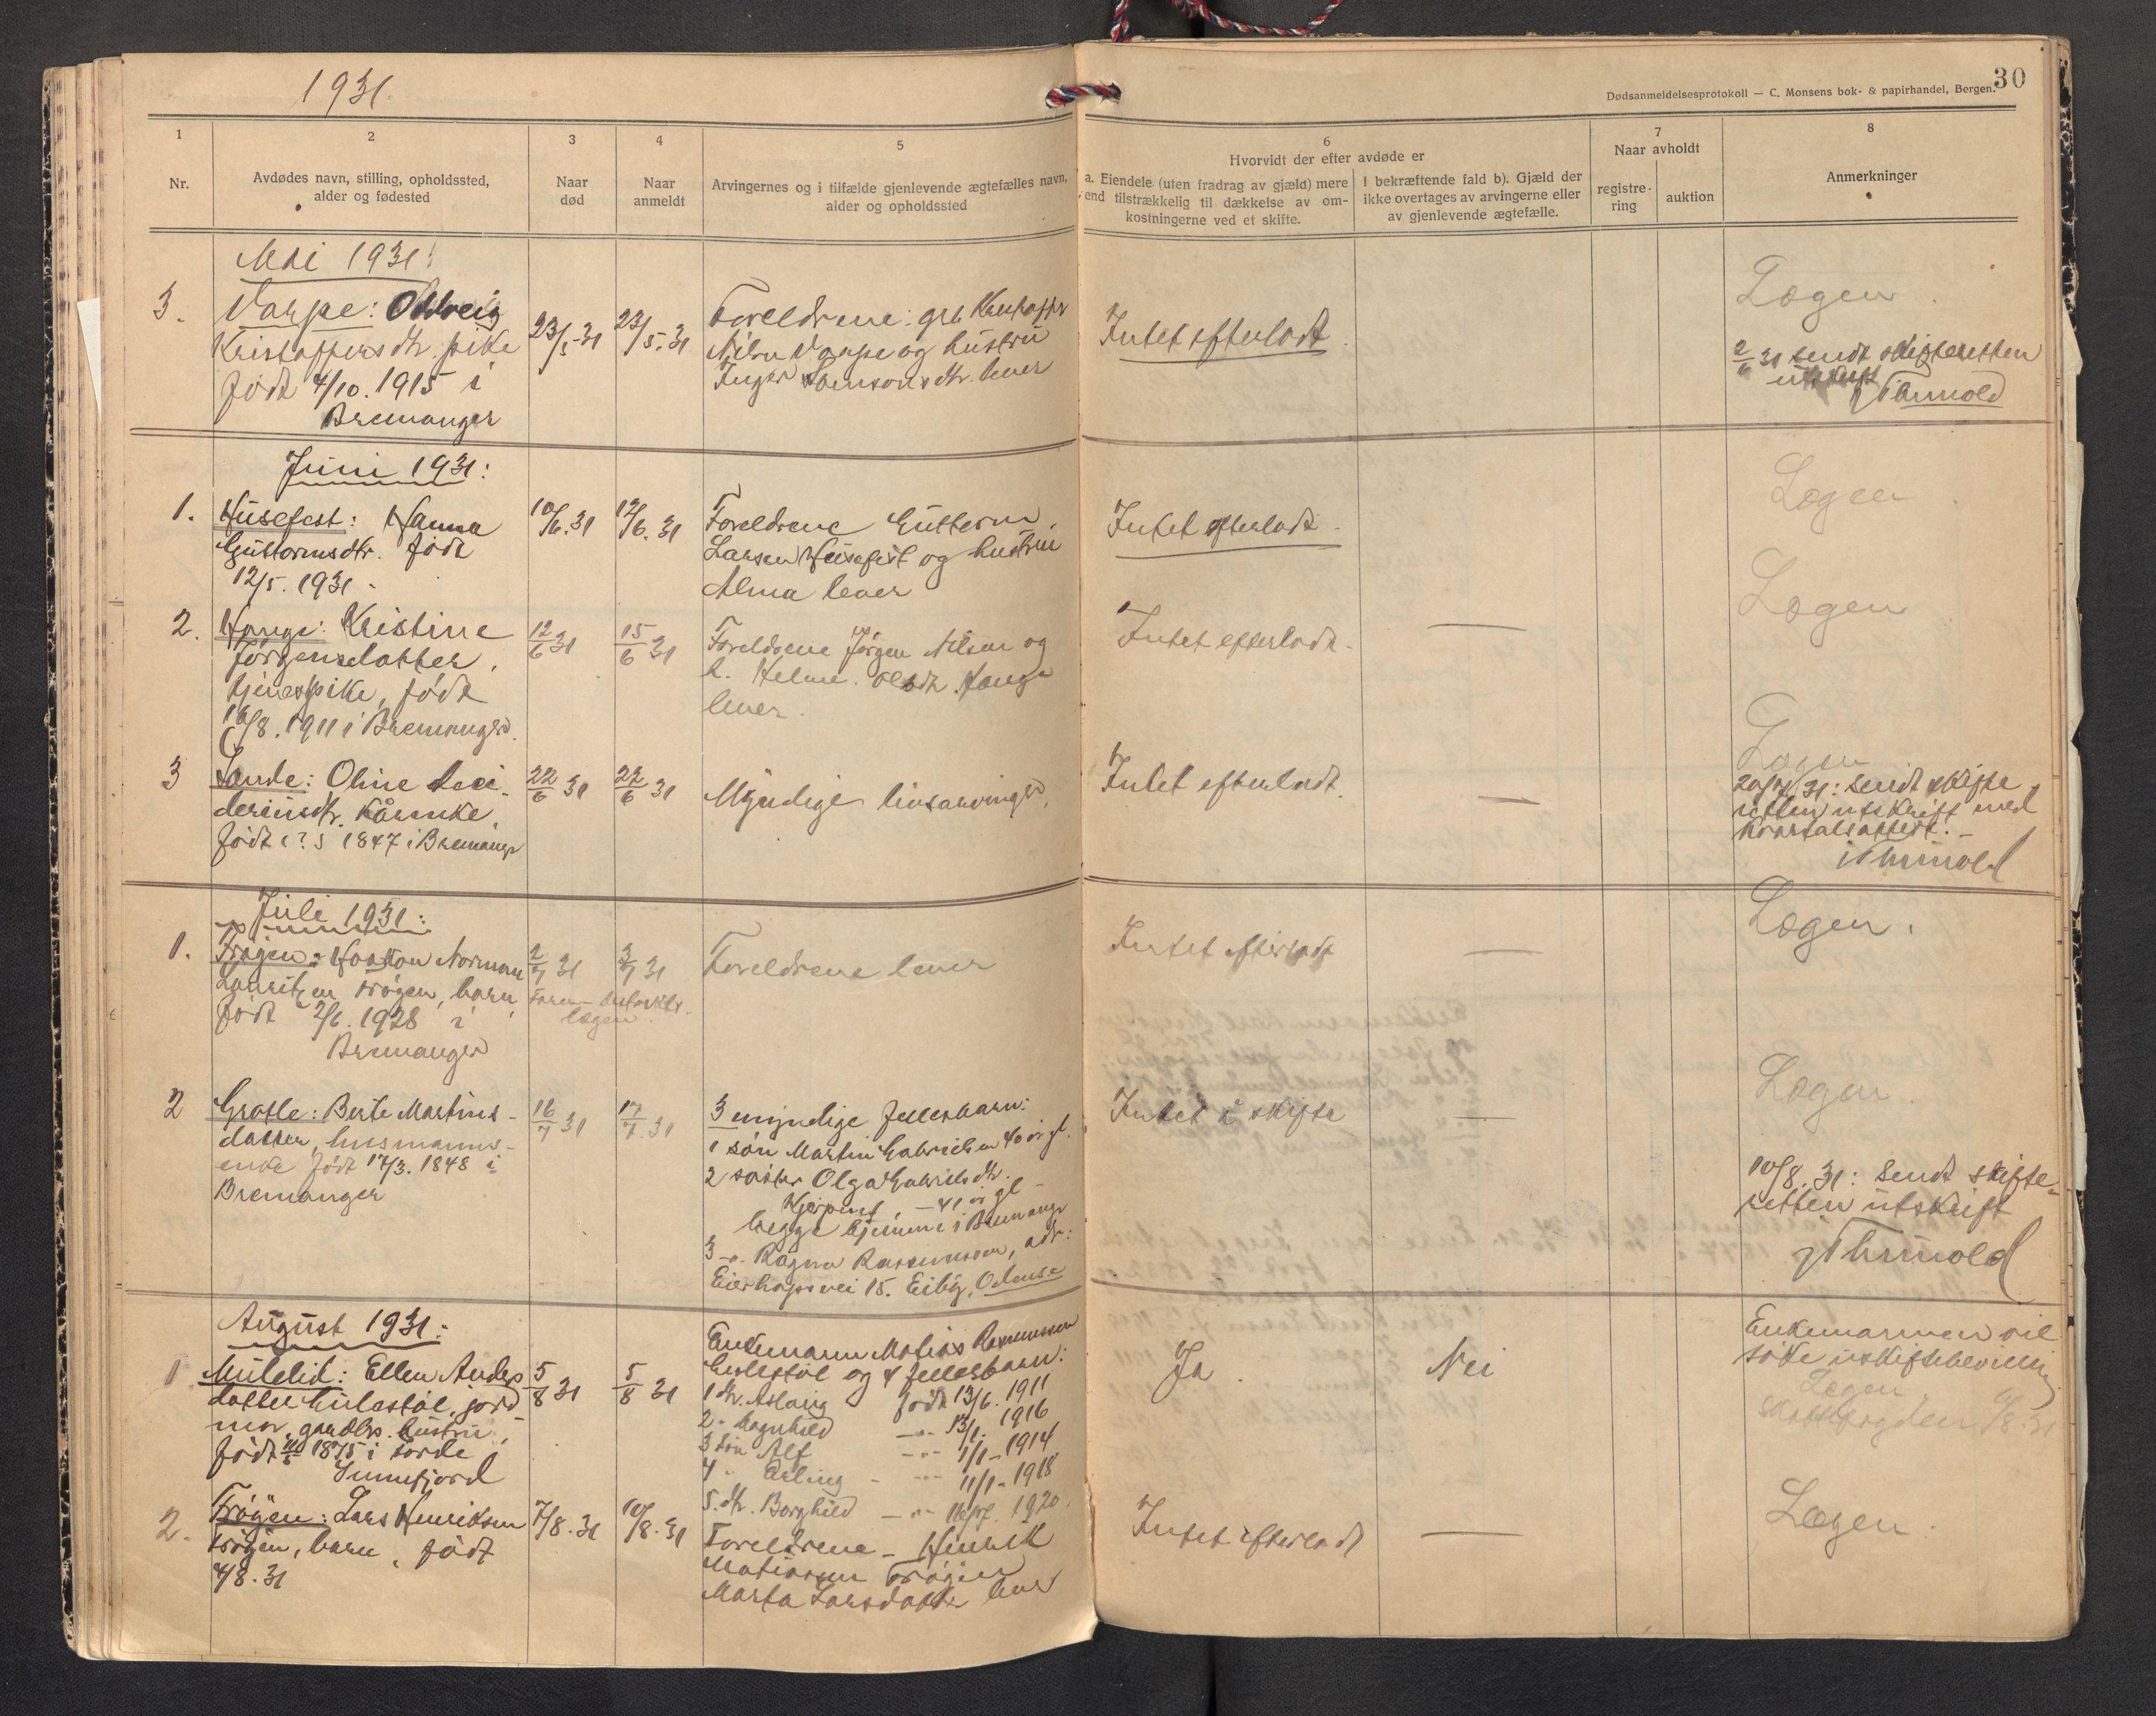 1931
30
Dødsanmeldelsesprotokoll — C. Monsens bok- & papirhandel, Bergen.
1
Nr.
2
Avdødes navn, stilling, opholdssted,
alder og fødested
3
Naar
død
4
Naar
anmeldt
5
Arvingernes og i tilfælde gjenlevende ægtefælles navn,
alder og opholdssted
6
Hvorvidt der efter avdøde er
a. Eiendele (uten fradrag av gjæld) mere
end tilstrækkelig til dækkelse av om-
kostningerne ved et skifte.
I bekræftende fald b). Gjæld der
ikke overtages av arvingerne eller
av gjenlevende ægtefælle.
7
Naar avholdt
registre-
ring
auktion
8
Anmerkninger
Mai 1931:
3.
Varpe: Oddveig
Kristoffersdtr. pike
født 4/10. 1915 i
Bremanger
23/5-31
23/5.31
Foreldrene: grb. Kristoffer
Nilsen Varpe og hustru
Inger Samsonsdtr. lever
Intet efterladt.
Lægen.
2/6 31 sendt skifteretten
utskrift
Juni 1931:
1.
Husefest: Hanna
Guttormsdtr. født
12/5. 1931.
10/6.31
12/6.31
Foreldrene Guttorm
Larsen Husefest og hustru
Alma lever
Intet efterladt.
Lægen
2.
Hauge: Kristine
Jørgensdatter,
tjenestpike, født
16/8. 1911 i Bremanger.
12/6 31
15/6 31
Foreldrene Jørgen Nilsen og
h. Helene Olsdtr. Hauge
lever.
Intet efterladt.
—
Lægen
3
Sande: Oline
derinsdtr. kårenke,
født (?) 1847 i Bremanger
22/6 31
22/6 31
Myndige livsarvinger.
Intet efterladt.
—
Lægen
20/7 31: Sendt skifte
retten utskrift med
kvartalsattest.-
Juli 1931:
1.
Frøyen: Haakon Norman
Lauritzen Frøyen, barn,
født 2/6. 1928 i
Bremanger
2/7 31
3/7 31
lægen.
Foreldrene lever
Intet efterladt
—
Lægen.
2
Grotle: Berte Martins-
datter, husmanns-
enke født 17/3. 1848 i
Bremanger
16/7 31
17/7.31
3 myndige fellesbarn:
1 søn Martin Gabrielsen 40 år gl.
2 datter Olga Gabrielsdtr.
— 41 år gl -
begge hjemme i Bremanger
3 -"- Ragna Rasmussen, adr:
15. Eiby, Odense
Intet å skifte
—
Lægen.
10/8.31: Sendt skifte-
retten utskrift
August 1931:
1
Mulelid: Ellen Anders
datter Gulestøl, jord
mor, gardbr. hustru,
født 1875 i Førde
Sunnfjord
5/8 31
5/8 31
Enkemann Matias Rasmussen
Gulestøl og 4 fellesbarn:
1 dtr. Aslaug født 13/6. 1911
2 " Magnhild -"- 13/1. 1916
3 søn Alf -"- 1/1-1914
4 " Erling -"- 11/1-1918
5. dtr. Borghild -"- 1920.
Ja.
Nei
Enkemannen vil
søke uskiftebevilling
Lægen.
8.31
2.
Frøyen: Lars Henriksen
Frøyen, barn, født
4/8.31
7/8.31
10/8.31
Foreldrene - Henrik
Matiassen Frøyen
Marta Larsdatter lever
Intet efterladt
—
Lægen.